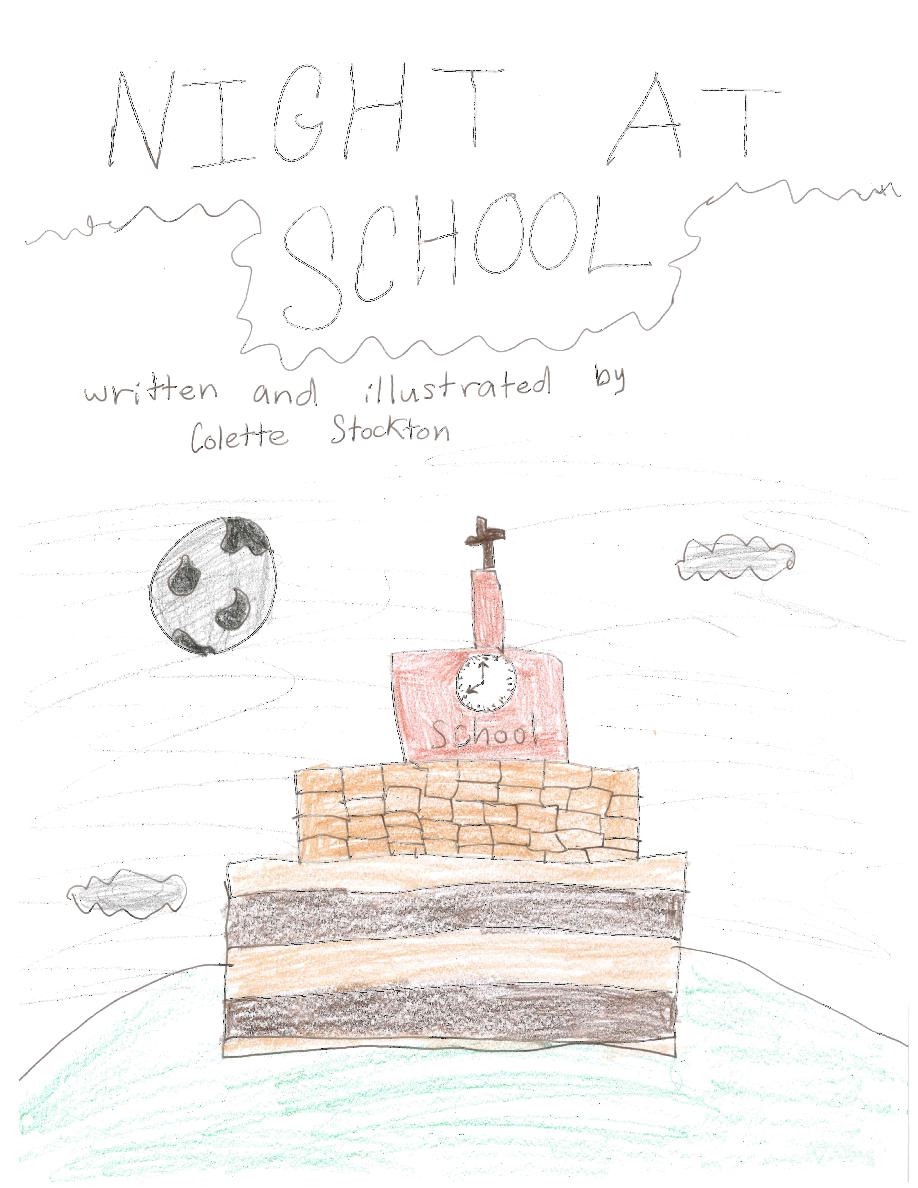 NIGHT AT
SCHOOL
written and illustrated by
Colette Stockton
School